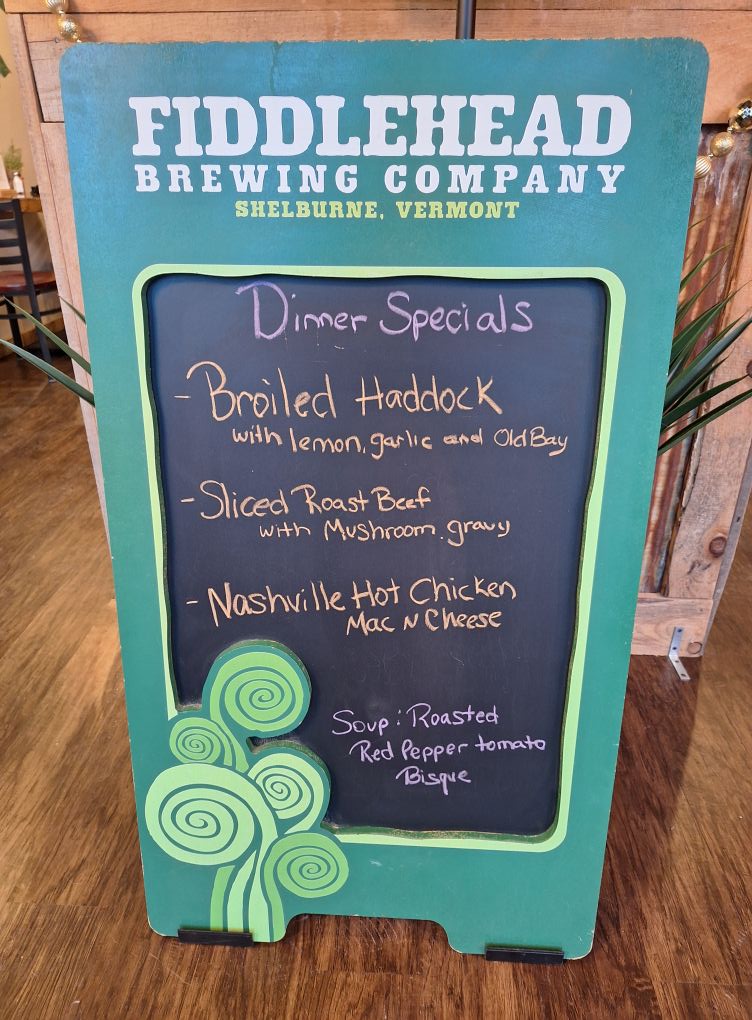 FIDDLEHEAD
BREWING COMPANY
SHELBURNE, VERMONT
Dinner Specials
- Broiled Haddock
with lemon, garlic and Old Bay
- Sliced Roast Beef
with Mushroom gravy
- Nashville Hot Chicken
Mac N Cheese
Soup: Roasted
Red Pepper tomato
Bisque